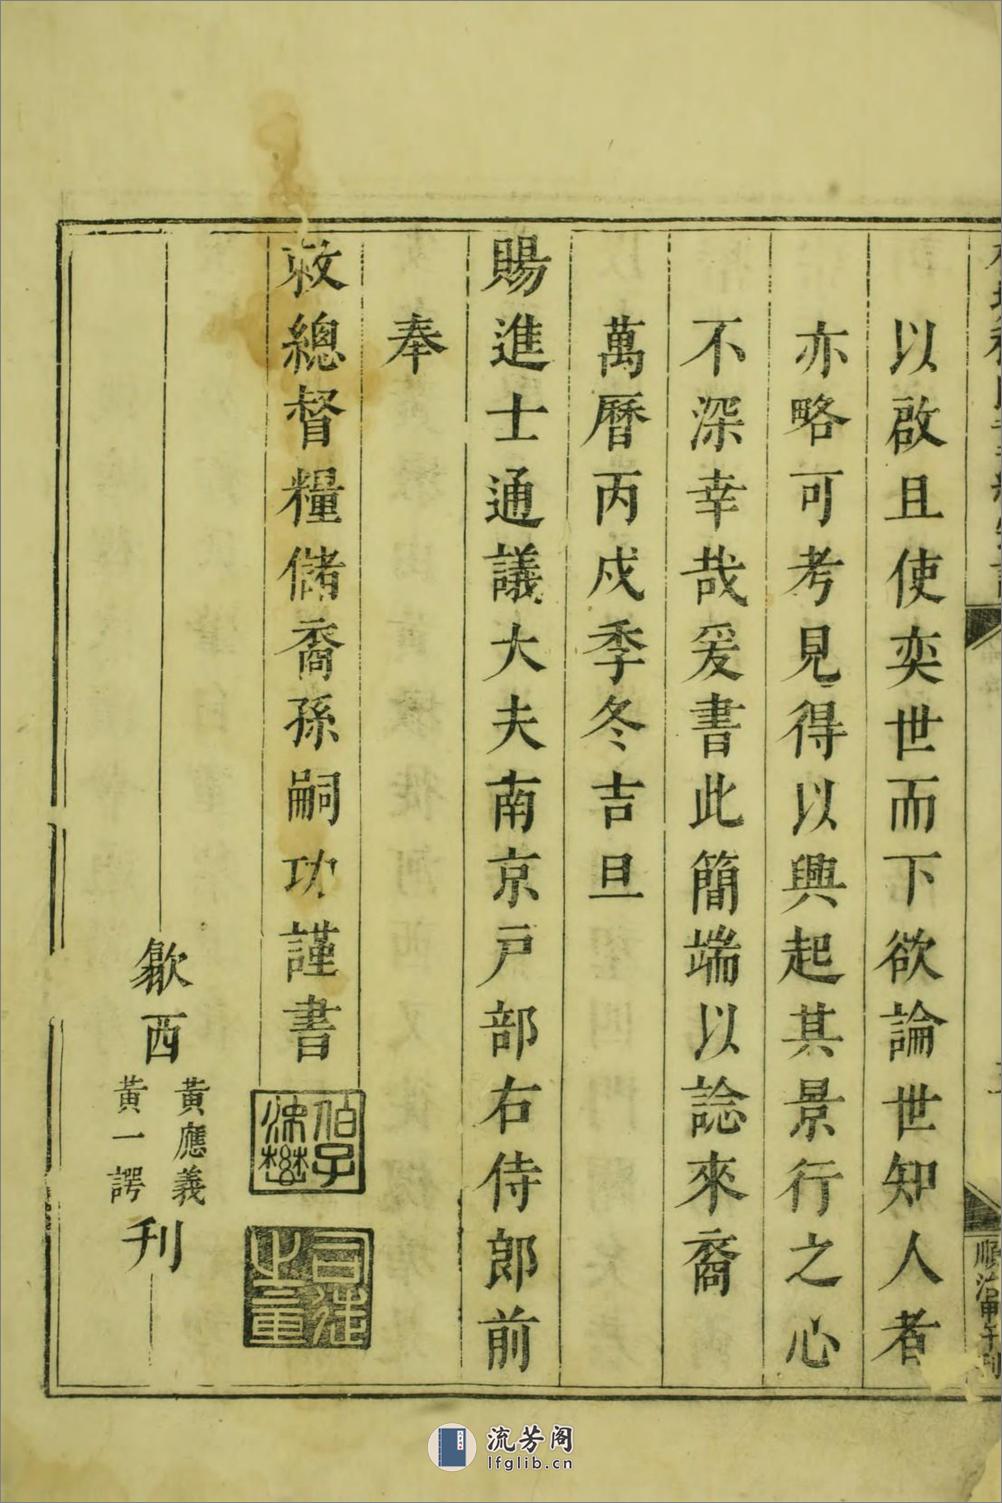 以啟且使奕世而下欲論世知人者
亦略可考見得以興起其景行之心
不深幸哉爰書此簡端以諗來裔
萬曆丙戌季冬吉旦
賜進士通議大夫南京戸部右侍郎前
奉
敕總督糧儲裔孫嗣功謹書
伯子
歙西
黃應義
黃一諤
刊
順治甲午刊
流芳阁
lfglib.cn